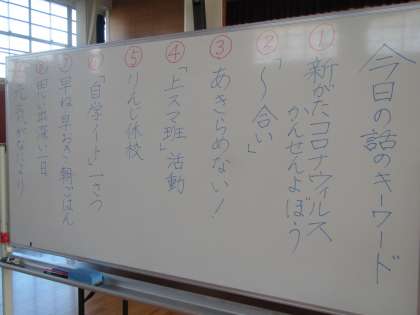 今日の話のキーワード
①新がたコロナウィルス
かんせんよぼう
②「〜合い」
③あきらめない!
④「上スマ班」活動
⑤りんじ休校
⑥「自学ノート」一さつ
⑦早ね早おき朝ごはん
⑧思い出深い一日
⑨元気がなにより